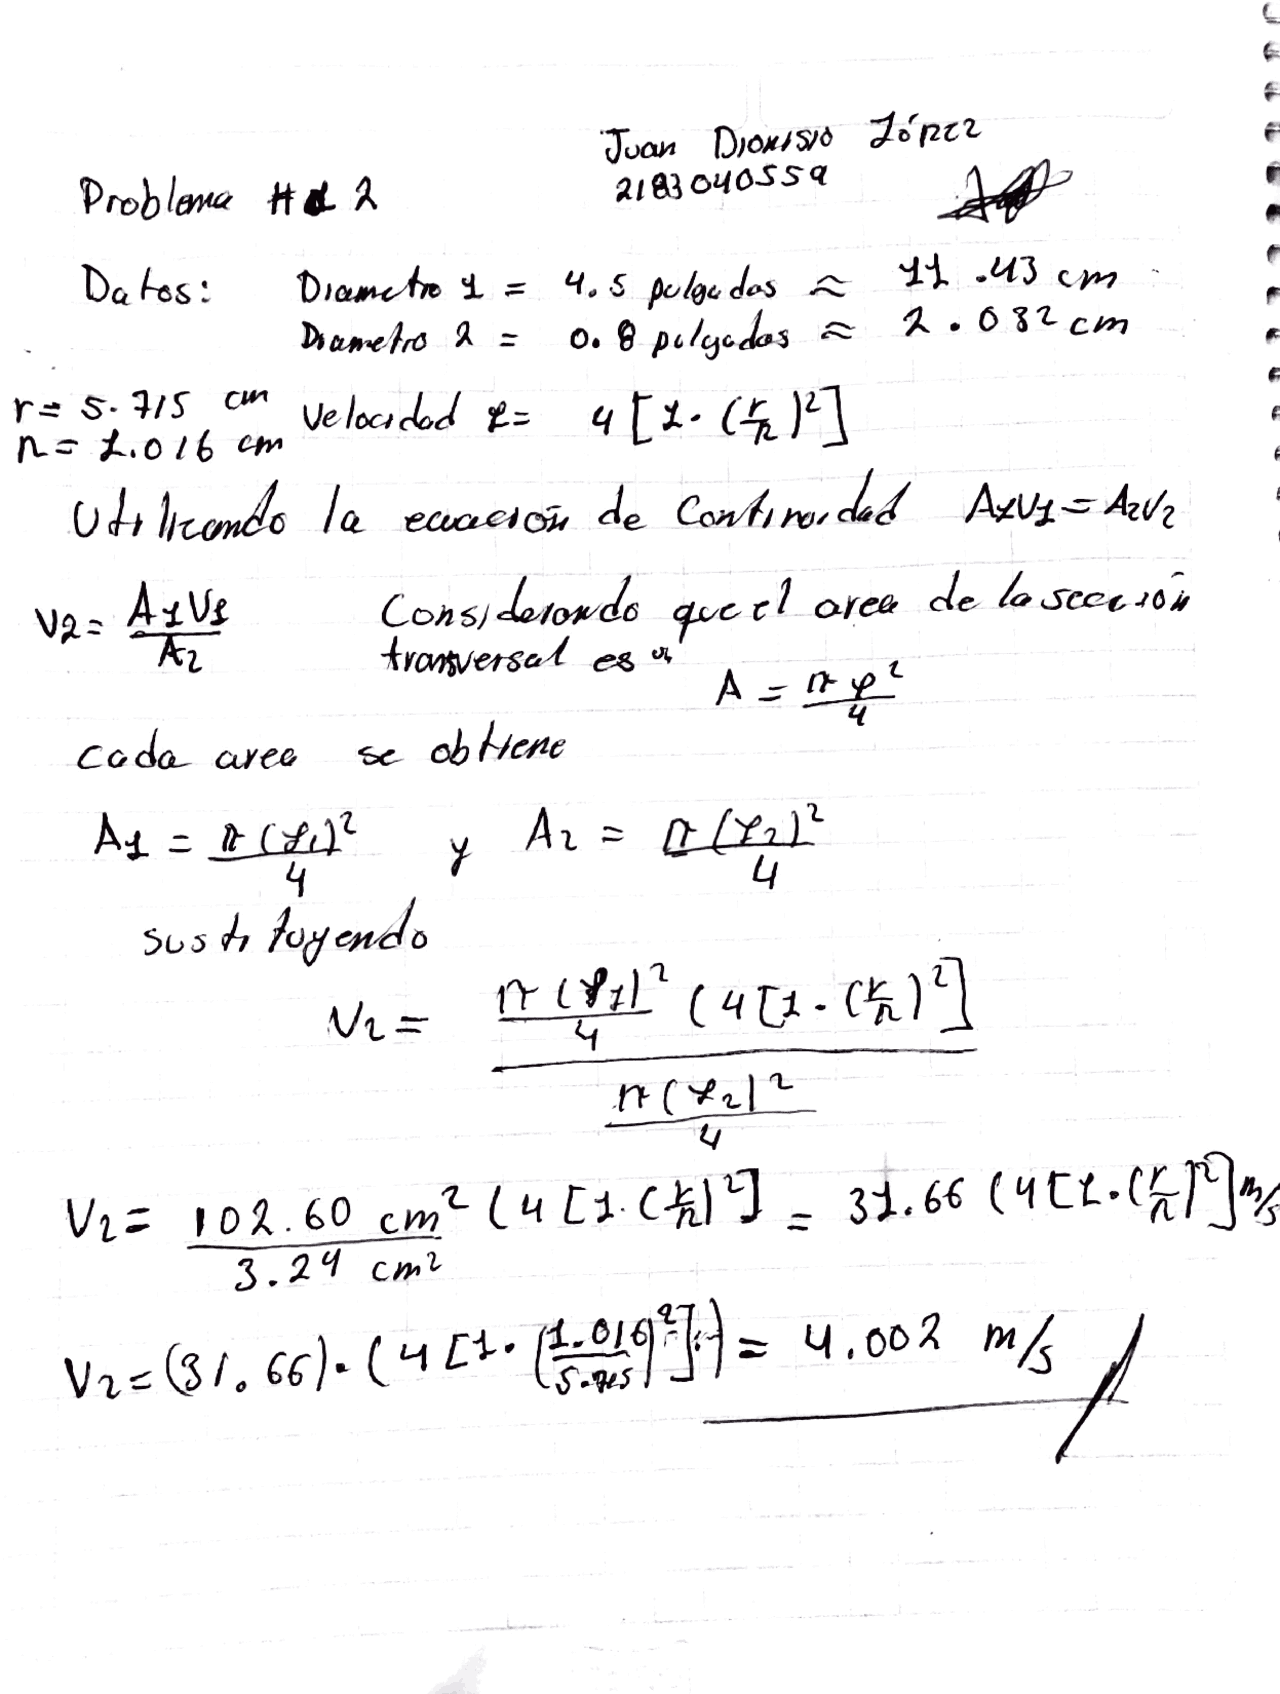 Juan Dionisio López
2183040559
Problema # 2
Datos: Diametro 1 = 4.5 pulgadas ≈ 11.43 cm
Diametro 2 = 0.8 pulgadas ≈ 2.032 cm
r = 5.715 cm
n = 1.016 cm
Velocidad 1 = 4 [1 - (r/n)²]
Utilizando la ecuación de Continuidad A1V1 = A2V2
V2 = A1V1 / A2
Considerando que el area de la sección
transversal es
A = π φ² / 4
cada area se obtiene
A1 = π (φ1)² / 4 y A2 = π (φ2)² / 4
sustituyendo
V2 = π (φ1)² / 4 (4 [1 - (r/n)²] / π (φ2)² / 4
V2 = 102.60 cm² (4 [1 - (r/n)²] / 3.24 cm² = 31.66 (4 [1 - (r/n)²] m/s
V2 = (31.66) · (4 [1 - (1.016 / 5.715)²]) = 4.002 m/s